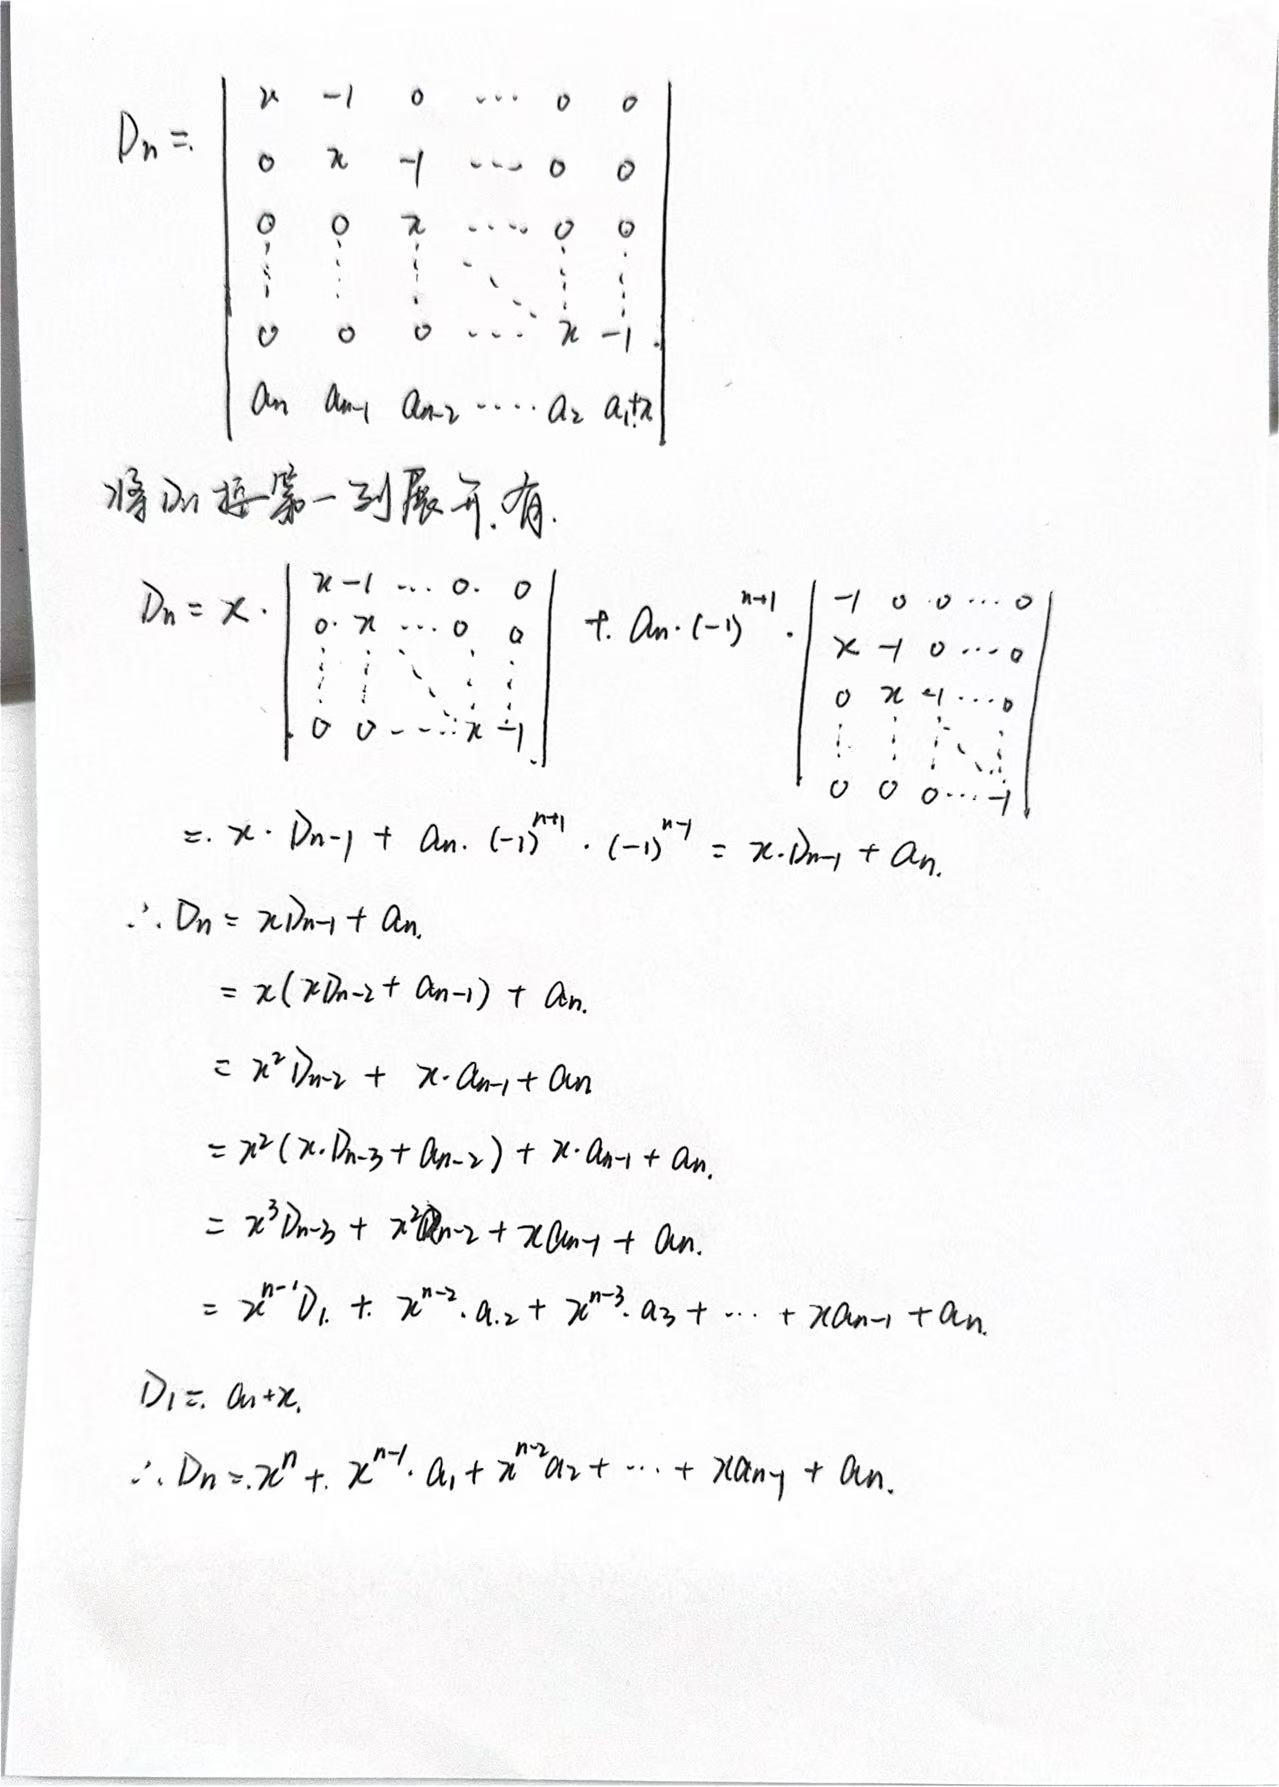 Dn =
x -1 0 ··· 0 0
0 x -1 ··· 0 0
0 0 x ···· 0 0
0 0 0 ···· x -1
an an-1 an-2 ···· a2 a1+x
将Dn按第一列展开.有.
Dn = x · | x -1 ··· 0 0 | + an·(-1)^{n+1} · | -1 0 0 ··· 0 |
| 0 x ··· 0 0 | | x -1 0 ··· 0 |
| 0 x -1 ··· 0 |
| 0 0 ···· x -1 | | 0 0 0 ··· -1 |
= x · Dn-1 + an·(-1)^{n+1}·(-1)^{n-1} = x·Dn-1 + an.
∴ Dn = xDn-1 + an.
= x(xDn-2 + an-1) + an.
= x²Dn-2 + x·an-1 + an
= x²(x·Dn-3 + an-2) + x·an-1 + an.
= x³Dn-3 + x²an-2 + xan-1 + an.
= x^{n-1}D1 + x^{n-2}·a2 + x^{n-3}·a3 + ··· + xan-1 + an.
D1 = a1+x.
∴ Dn = x^n + x^{n-1}·a1 + x^{n-2}a2 + ··· + xan-1 + an.